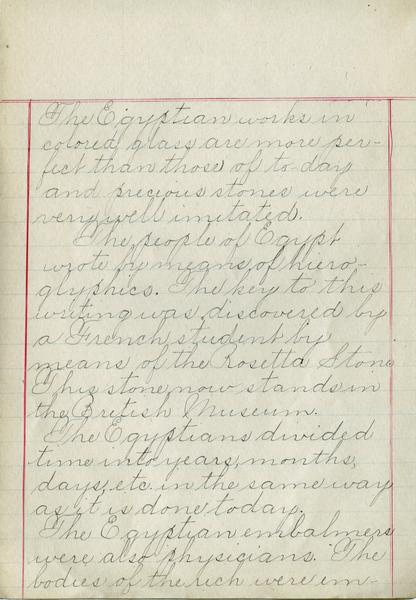 The Egyptian works in
colored glass are more per-
fect than those of to day
and precious stones were
very well imitated.
The people of Egypt
wrote by means of hiero-
glyphics. The key to this
writing was discovered by
a French student by
means of the Rosetta Stone
This stone now stands in
the British Museum.
The Egyptians divided
time into years, months,
days, etc. in the same way
as it is done today.
The Egyptian embalmers
were also physicians. The
bodies of the rich were em-